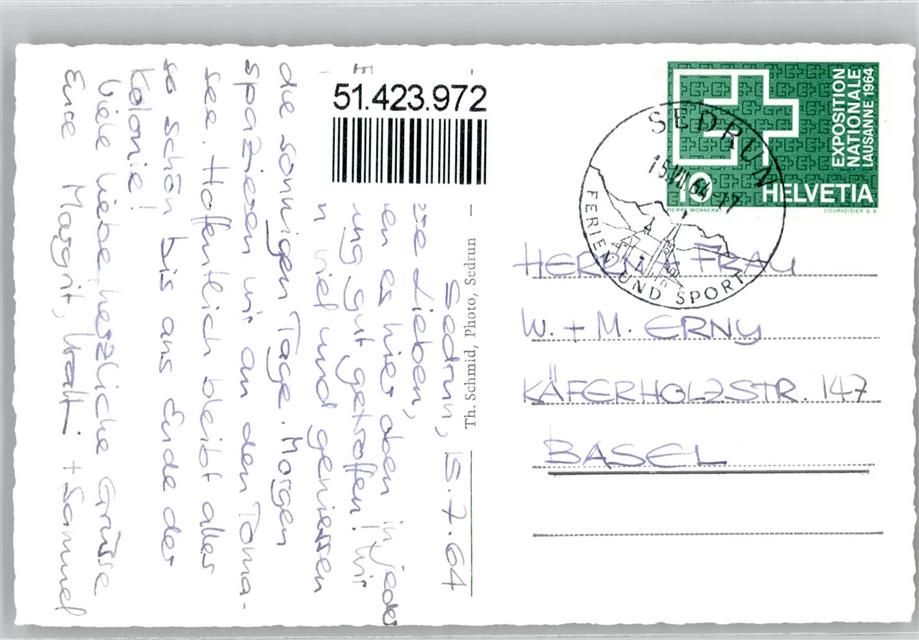 Sedrun, 15.7.64
Lieben,
es hier oben in jeder
gut getroffen! Wir
n viel und geniessen
die sonnigen Tage. Morgen
spazieren wir an den Toma-
see. Hoffentlich bleibt alles
so schön bis ans Ende der
Kolonie!
Viele liebe, herzliche Grüsse
Eure Margrit, Walti + Samuel
51.423.972
Th. Schmid, Photo, Sedrun
EXPOSITION
NATIONALE
LAUSANNE 1964
10 HELVETIA
PIERRE MONNERAT COURVOISIER S.A.
SEDRUN
15.VII.64-17
FERIEN UND SPORT
HERRN + FRAU
W. + M. ERNY
KÄFERHOLZSTR. 147
BASEL